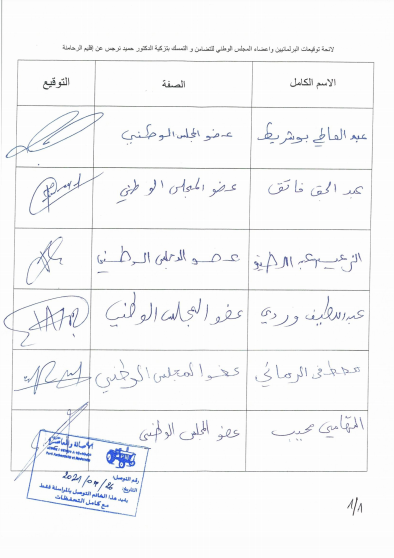 لائحة توقيعات البرلمانيين واعضاء المجلس الوطني للتضامن و التمسك بتزكية الدكتور حميد نرجس عن إقليم الرحامنة
الاسم الكامل الصفة التوقيع
عبد العاطي بوشريط عضو المجلس الوطني
عبد الحق فائق عضو المجلس الوطني
عضو المجلس الوطني
عبد اللطيف وردي عضو المجلس الوطني
مصطفى الرماني عضو المجلس الوطني
التهامي محيب عضو المجلس الوطني
الأصالة والمعاصرة
رقم التوصيل:
التاريخ: 2021/04/26
يفيد هذا الخاتم التوصل بالمراسلة فقط
مع كامل التحفظات
1/1